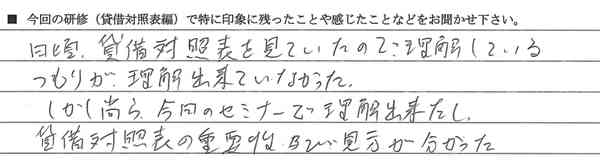 ■ 今回の研修（貸借対照表編）で特に印象に残ったことや感じたことなどをお聞かせ下さい。
日頃、貸借対照表を見ていたので理解している
つもりが、理解出来ていなかった。
しかし尚ら、今回のセミナーで理解出来たし、
貸借対照表の重要性、及び見方が分かった